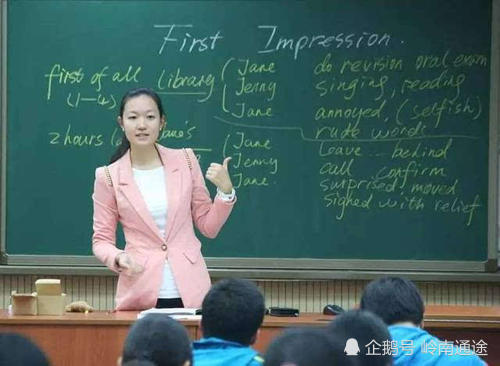 First Impression.
first of all library
(1-4)
Jane
Jenny
Jane
do revision oral exam
singing, reading
annoyed, (selfish)
rude words
2 hours
Jane
Jenny
Jane.
leave... behind
call confirm
surprised, moved
sighed with relief
企鹅号 岭南通途